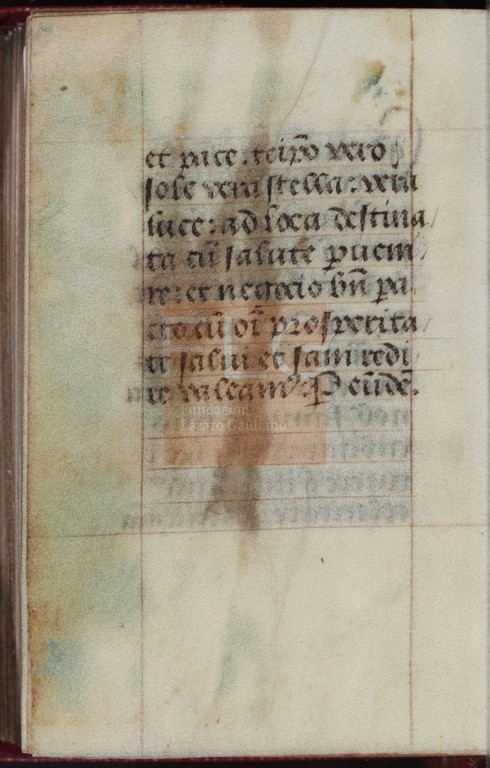 et pace: teip̄o vero
sole vera stella: vera
luce: ad loca destina/
ta cū salute p̱ueni/
re: et negocio bn̄ pa/
cto cū oī prosperita/
te salui et sani redi/
re valeam⁹. P eūdē.
Fundación
Lázaro Galdiano